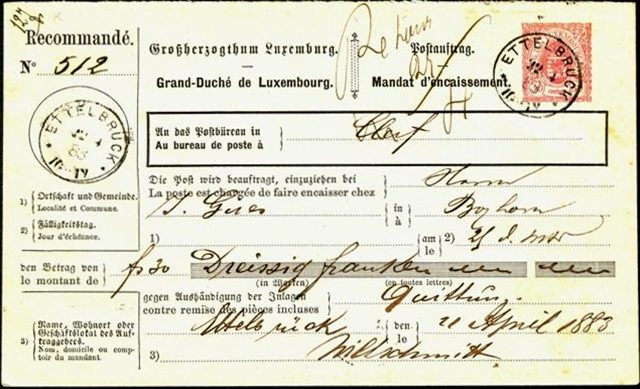 Recommandé.
Nº 512
Großherzogthum Luxemburg.
Postauftrag.
Grand-Duché de Luxembourg.
Mandat d'encaissement.
ETTELBRUCK
ETTELBRUCK
An das Postbüreau in
Au bureau de poste à
Clerf
Die Post wird beauftragt, einzuziehen bei
La poste est chargée de faire encaisser chez
Herrn
1) Ortschaft und Gemeinde.
Localité et Commune.
in
à
2) Fälligkeitstag.
Jour d'échéance.
1)
am
le
2)
den Betrag von
le montant de
frs 30 Dreissig franken
(in Worten)
(en toutes lettres)
gegen Aushändigung der Inlagen
contre remise des pièces incluses
Quittung
Ettelbrück
den
le
21 April 1883
3) Name, Wohnort oder
Geschäftslokal des Auf-
traggebers.
Nom, domicile ou comp-
toir du mandant.
3)